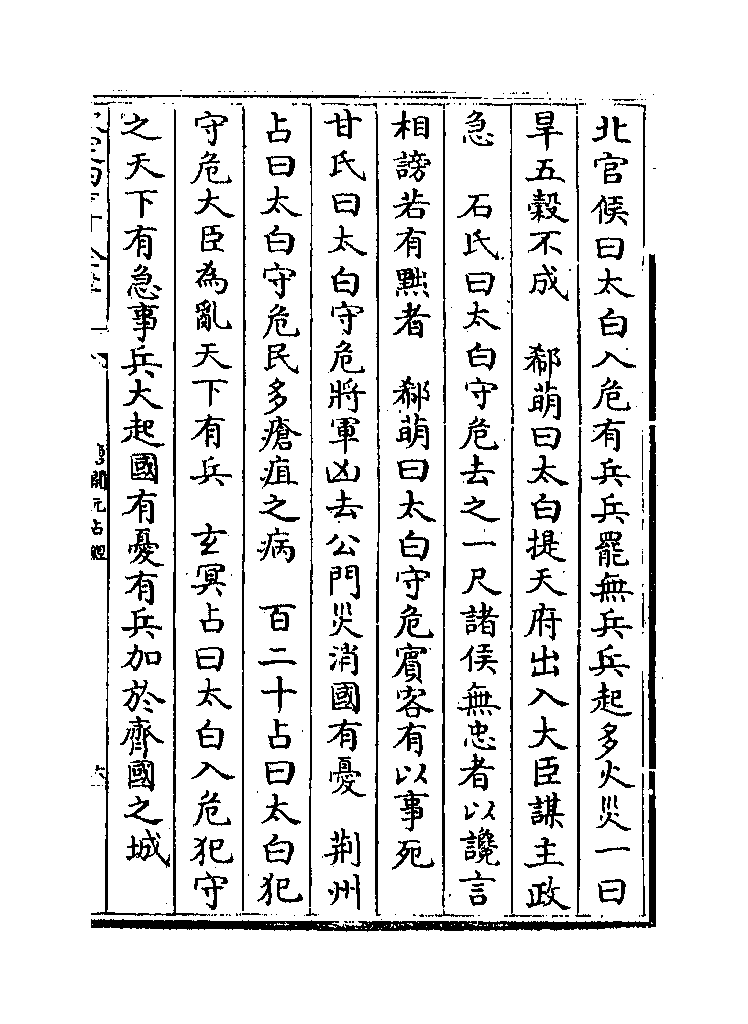 北官候曰太白入危有兵兵罷無兵兵起多火災一曰
旱五穀不成　郗萌曰太白提天府出入大臣謀主政
急　石氏曰太白守危去之一尺諸侯無忠者以讒言
相謗若有黜者　郗萌曰太白守危賓客有以事死
甘氏曰太白守危將軍凶去公門災消國有憂　荆州
占曰太白守危民多瘡疽之病　百二十占曰太白犯
守危大臣為亂天下有兵　玄冥占曰太白入危犯守
之天下有急事兵大起國有憂有兵加於齊國之城
開元占經
六